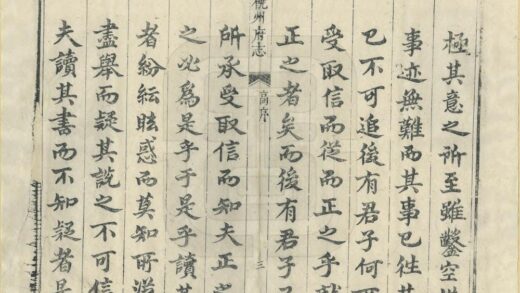 極其意之所至雖鑿空
事迹無難而其事已徃其
已不可追後有君子何
受取信而從而正之乎就
正之者矣而後有君子
杭州府志
高序
三
所承受取信而知夫正之
之必爲是乎于是乎讀其
者紛紜眩惑而莫知所
盡舉而疑其説之不可信
夫讀其書而不知疑者是